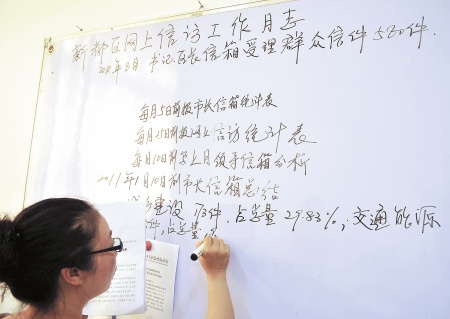 新都区网上信访工作月志
2011年3月 书记区长信箱受理群众信件580件.
每月5日前报市长信箱统计表
每月25日前报网上信访统计表
每月10日前写上月领导信箱分析
2011年1月10日前市长信箱总结
建设 173件. 占总量29.83%; 交通能源
件, 占总量